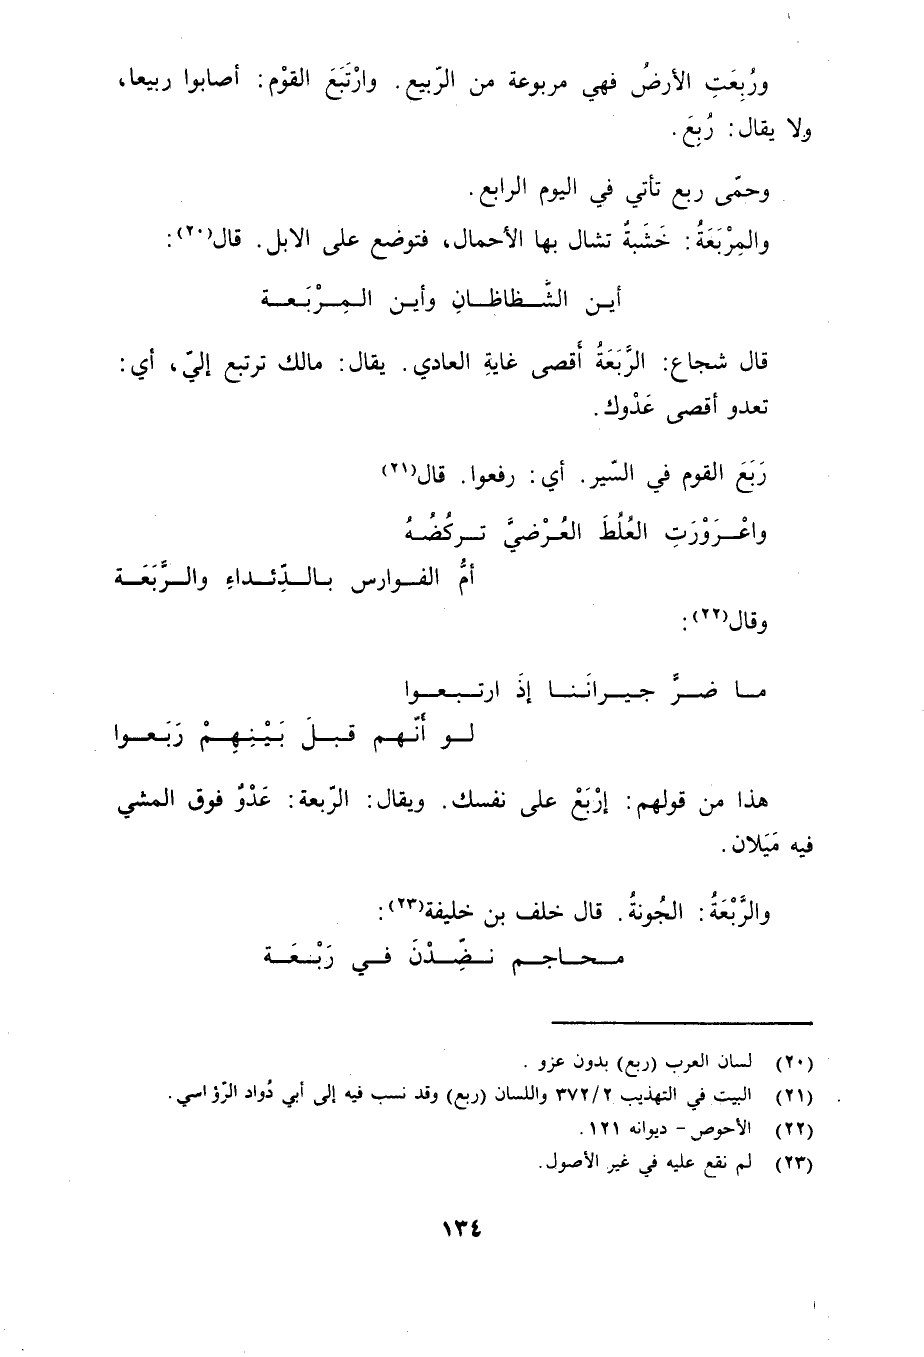 ورُبِعَتِ الأرضُ فهي مربوعة من الرّبيع. وارْتَبَعَ القوْم: أصابوا ربيعا،
ولا يقال: رُبِعَ.
وحمّى ربع تأتي في اليوم الرابع.
والمِرْبَعَةُ: خَشَبةٌ تشال بها الأحمال، فتوضع على الابل. قال(٢٠):
أين الشَّظاظانِ وأين المِرْبَعة
قال شجاع: الرَّبَعَةُ أَقصى غايةِ العادي. يقال: مالك ترتبع إليّ، أي:
تعدو أقصى عَدْوِك.
رَبَعَ القوم في السّير. أي: رفعوا. قال(٢١)
واعْرَوْرَتِ العُلُطَ العُرْضيَّ تركُضُهُ
أمُّ الفوارس بالدِّئداءِ والرَّبَعَة
وقال(٢٢):
ما ضرَّ جيرانَنا إذَ ارتبعوا
لو أَنّهم قبلَ بَيْنِهِمْ رَبَعوا
هذا من قولهم: إرْبَعْ على نفسك. ويقال: الرّبعة: عَدْوٌ فوق المشي
فيه مَيَلان.
والرَّبْعَةُ: الجُونةُ. قال خلف بن خليفة(٢٣):
محاجم نضِّدْنَ في رَبْعَة
(٢٠) لسان العرب (ربع) بدون عزو .
(٢١) البيت في التهذيب ٣٧٢/٢ واللسان (ربع) وقد نسب فيه إلى أبي دُواد الرّؤاسي.
(٢٢) الأحوص - ديوانه ١٢١.
(٢٣) لم نقع عليه في غير الأصول.
١٣٤